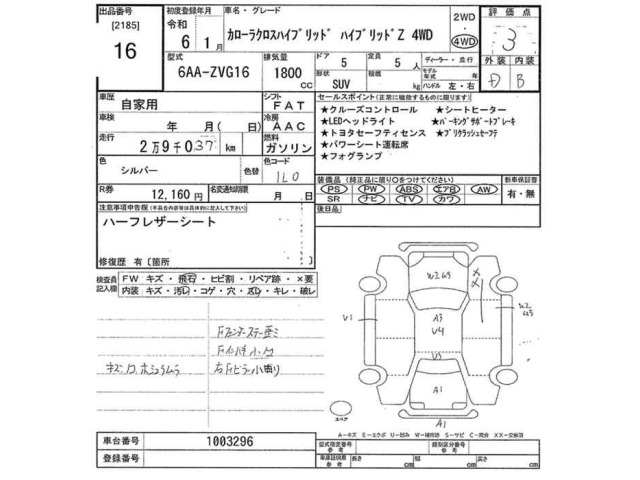 出品番号 初度登録年月 車名・グレード 2WD 評価点
[2185] 令和 カローラクロスハイブリッド ハイブリッドZ 4WD 4WD 3
16 6年 1月
型式 排気量 ドア 定員 ディーラー・並行 外装 内装
6AA-ZVG16 1800 cc 5 5人 モデル年式 年 D B
形状 積載 ハンドル 左・右
SUV kg
車歴 シフト セールスポイント(正常に機能するものに限ります)
自家用 FAT ★クルーズコントロール ★シートヒーター
車検 冷房 ★LEDヘッドライト ★パーキングサポートブレーキ
年 月( ) AAC ★トヨタセーフティセンス ★プリクラッシュセーフテ
走行 燃料 ★パワーシート運転席
2万9千037km ガソリン ★フォグランプ
色 色替 色コード
シルバー 1L0
装備品(純正品に限り○をつけてください) 新車保証書
R券 名変通知期限 PS PW ABS エアB AW 有・無
12,160円 月 日 SR ナビ TV カワ
注意事項申告欄(不具合内容等は具体的に記入して下さい) 後日品
ハーフレザーシート
修復歴 有[箇所
検査員記入欄 FW キズ・飛石・ヒビ割・リペア跡・×要
内装 キズ・汚レ・コゲ・穴・スレ・キレ・破レ
W2 U3
XX
W2
U3
U1
A3
U4
U3
A1
A1
スペア
A-キズ E-エクボ U-凹み W-補修跡 S-サビ C-腐食 XX-交換済
車台番号 1003296 型式指定番号 参考 類別区分番号 参考
登録番号 車庫証明用 参考 長さ cm 幅 cm 高さ cm